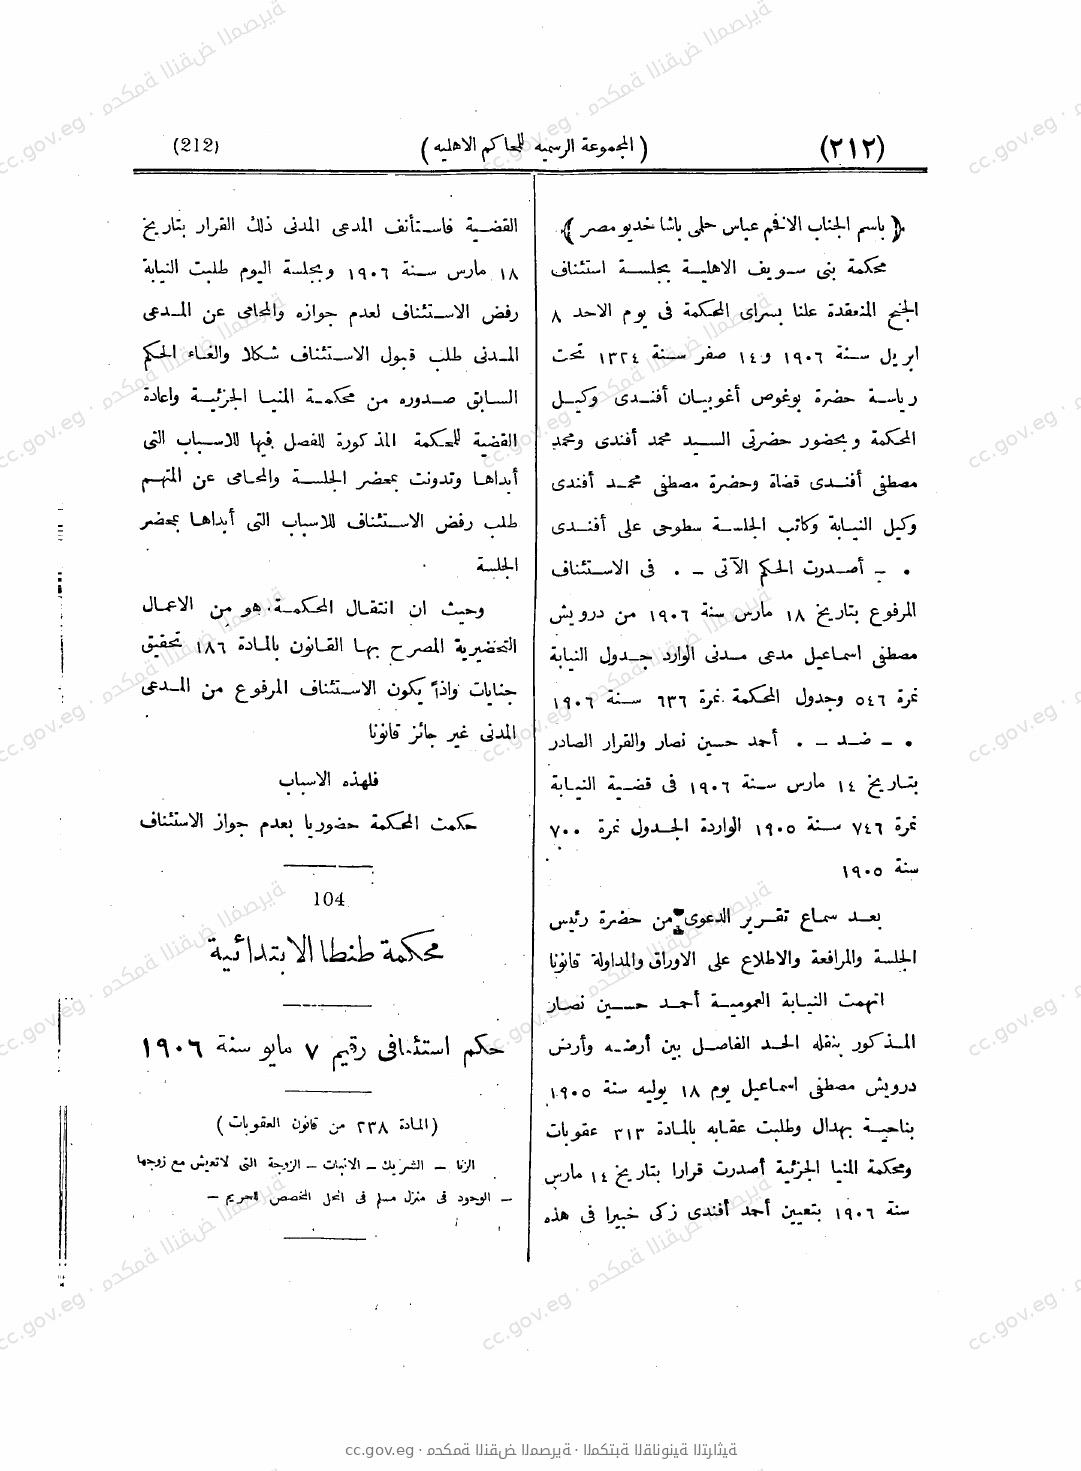 (٢١٢)
( المجموعة الرسمية للمحاكم الاهلية )
(212)
﴿ باسم الجناب الافخم عباس حلمى باشا خديو مصر ﴾
محكمة بنى سويف الاهلية بجلسة استئناف
الجنح المنعقدة علنا بسراى المحكمة فى يوم الاحد ٨
ابريل سنة ١٩٠٦ و١٤ صفر سنة ١٣٢٤ تحت
رياسة حضرة بوغوص أغوبيان أفندى وكيل
المحكمة وبحضور حضرتى السيد محمد أفندى ومحمد
مصطفى أفندى قضاة وحضرة مصطفى محمد أفندى
وكيل النيابة وكاتب الجلسة سطوحى على أفندى
٠ – أصدرت الحكم الآتى – ٠ فى الاستئناف
المرفوع بتاريخ ١٨ مارس سنة ١٩٠٦ من درويش
مصطفى اسماعيل مدعى مدنى الوارد جدول النيابة
نمرة ٥٤٦ وجدول المحكمة نمرة ٦٣٦ سنة ١٩٠٦
٠ – ضد – ٠ أحمد حسين نصار والقرار الصادر
بتاريخ ١٤ مارس سنة ١٩٠٦ فى قضية النيابة
نمرة ٧٤٦ سنة ١٩٠٥ الواردة الجدول نمرة ٧٠٠
سنة ١٩٠٥
بعد سماع تقرير الدعوى من حضرة رئيس
الجلسة والمرافعة والاطلاع على الاوراق والمداولة قانونا
اتهمت النيابة العمومية أحمد حسين نصار
المذكور بنقله الحد الفاصل بين أرضه وأرض
درويش مصطفى اسماعيل يوم ١٨ يوليه سنة ١٩٠٥
بناحية بهدال وطلبت عقابه بالمادة ٣١٣ عقوبات
ومحكمة المنيا الجزئية أصدرت قرارا بتاريخ ١٤ مارس
سنة ١٩٠٦ بتعيين أحمد أفندى زكى خبيرا فى هذه
القضية فاستأنف المدعى المدنى ذلك القرار بتاريخ
١٨ مارس سنة ١٩٠٦ وبجلسة اليوم طلبت النيابة
رفض الاستئناف لعدم جوازه والمحامى عن المدعى
المدنى طلب قبول الاستئناف شكلا والغاء الحكم
السابق صدوره من محكمة المنيا الجزئية واعادة
القضية للمحكمة المذكورة للفصل فيها للاسباب التى
أبداها وتدونت بمحضر الجلسة والمحامى عن المتهم
طلب رفض الاستئناف للاسباب التى أبداها بمحضر
الجلسة
وحيث ان انتقال المحكمة هو من الاعمال
التحضيرية المصرح بها القانون بالمادة ١٨٦ تحقيق
جنايات واذاً يكون الاستئناف المرفوع من المدعى
المدنى غير جائز قانونا
فلهذه الاسباب
حكمت المحكمة حضوريا بعدم جواز الاستئناف
104
محكمة طنطا الابتدائية
حكم استئنافى رقيم ٧ مايو سنة ١٩٠٦
(المادة ٢٣٨ من قانون العقوبات)
الزنا – الشريك – الاثبات – الزوجة التى لاتعيش مع زوجها
– الوجود فى منزل مسلم فى المحل المخصص للحريم –
cc.gov.eg · محكمة النقض المصرية · المكتبة القانونية التراثية